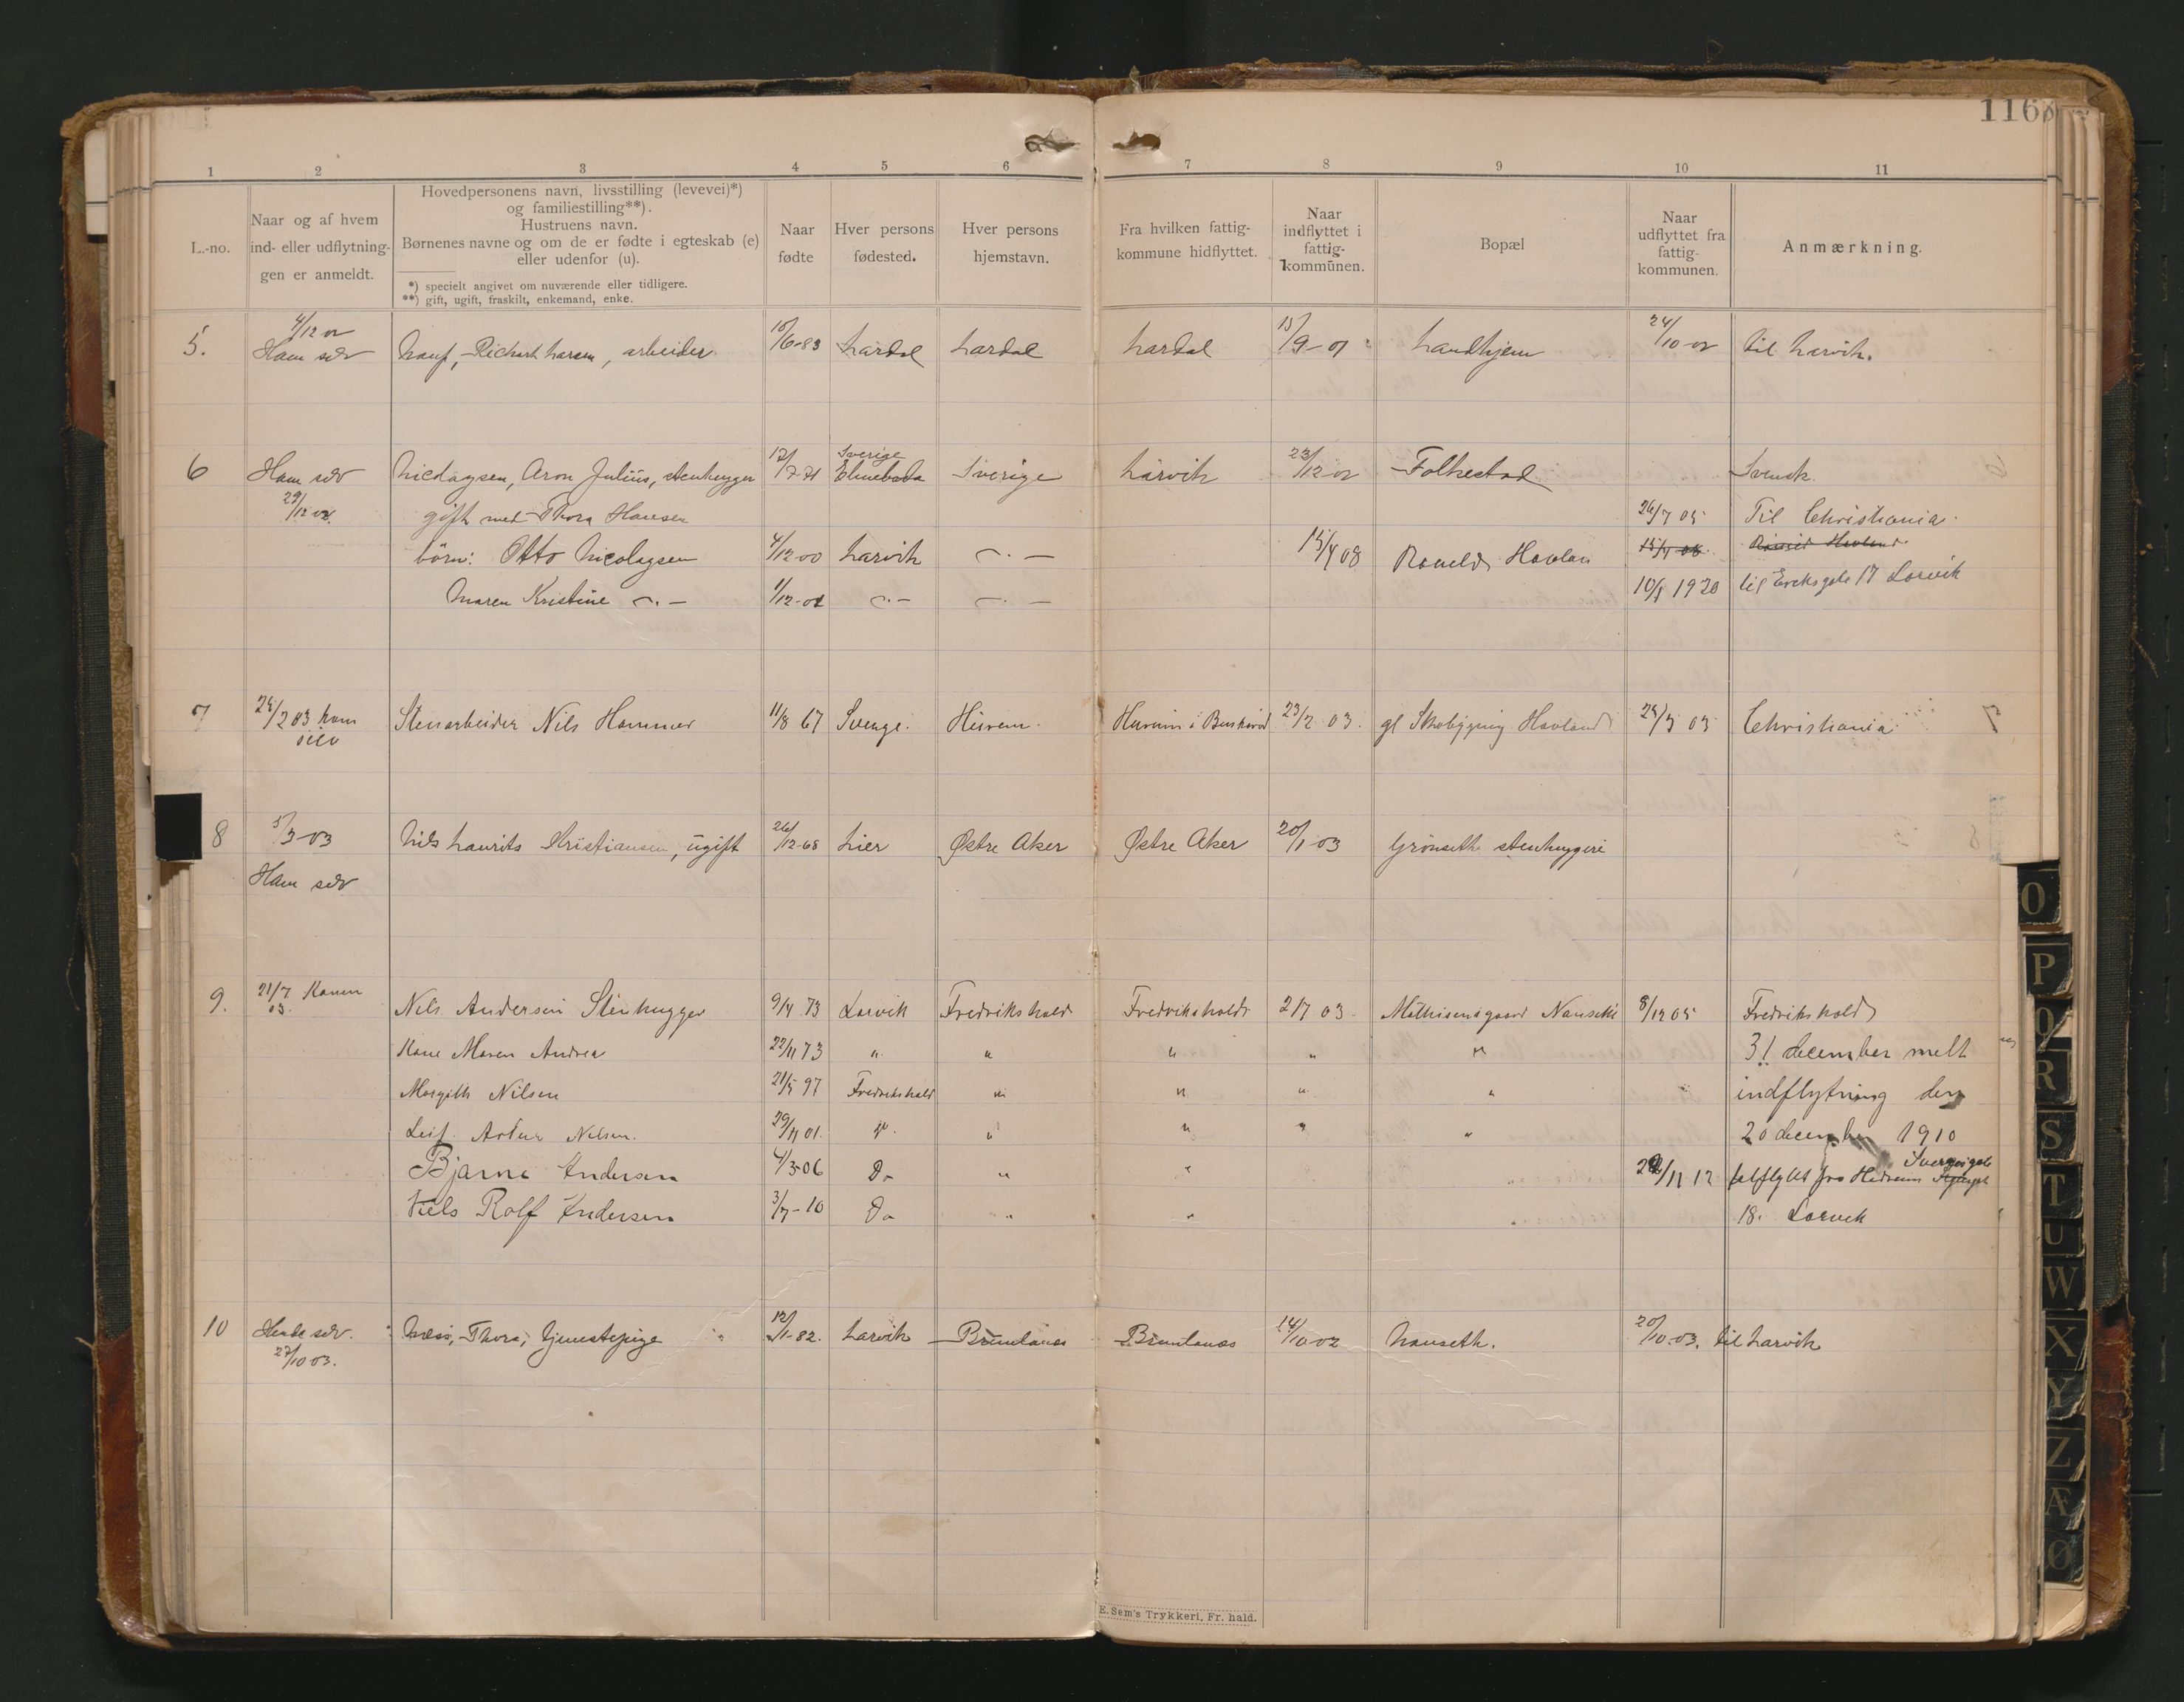 116
1 2 3 4 5 6 7 8 9 10 11
L.-no.
Naar og af hvem
ind- eller udflytning-
gen er anmeldt.
Hovedpersonens navn, livsstilling (levevei)*)
og familiestilling**).
Hustruens navn.
Børnenes navne og om de er fødte i egteskab (e)
eller udenfor (u).
*) specielt angivet om nuværende eller tidligere.
**) gift, ugift, fraskilt, enkemand, enke.
Naar
fødte
Hver persons
fødested.
Hver persons
hjemstavn.
Fra hvilken fattig-
kommune hidflyttet.
Naar
indflyttet i
fattig-
kommunen.
Bopæl
Naar
udflyttet fra
fattig-
kommunen.
Anmærkning.
4/12 02
5. Ham selv Richart Larsen, arbeider 10/6-83 Lardal Lardal Lardal 15/9-01 Landhjem 24/10-02 til Larvik.
Sverige
6 Ham selv Nicolaysen, Aron Julius, stenhugger 12/7-71 Sverige Larvik 23/12-02 Folkestad Svensk
29/12 02. gift med Thora Hansen 26/7 05 Til Christiania
børn: Otto Nicolaysen 4/12-00 Larvik -.- 15/4 08 15/4 08
Maren Kristine -.- 1/12-01 -.- -.- 10/5 1920 til 17 Larvik
7 24/2 03 ham Stenarbeider Nils Hammer 11/8 67 Sverige. Hurum. Hurum i Buskerud 23/2 03. gl Skolbygning Hovland 25/5 05 Christiania 7
selv
8 5/3-03 Nils Laurits Kristiansen, ugift 26/12-68 Lier Østre Aker Østre Aker 20/1-03 Grönseth stenhuggeri
Ham selv
9. 21/7 Konen Nils Andersen Stenhugger 9/4 73 Larvik Fredrikshald Fredrikshald 2/7 03. Mathisensgaard Nanseth 8/12 05 Fredrikshald
03.
Kone Maren Andrea 22/11 73 " " " " " 31 december melt
Margith Nilsen 21/5 97 Fredrikshald " " " " indflytning den
Leif Artur Nilsen. 29/11 01. " " " " " 20 december 1910
Bjarne Andersen 4/3-06 Do " " 22/11 12 fra Hedrum
Niels Rolf Andersen 3/7-10 Do " " " 18. Larvik
10 Hende selv. Næss, Thora, tjenestepige 12/1-82. Larvik Brunlanes Brunlanes 14/10-02 Nanseth. 20/10-03. til Larvik
27/10 03.
E. Sem's Trykkeri, Fr. hald.
O
P
Q
R
S
T
U
W
X
Y
Z
Æ
Ø